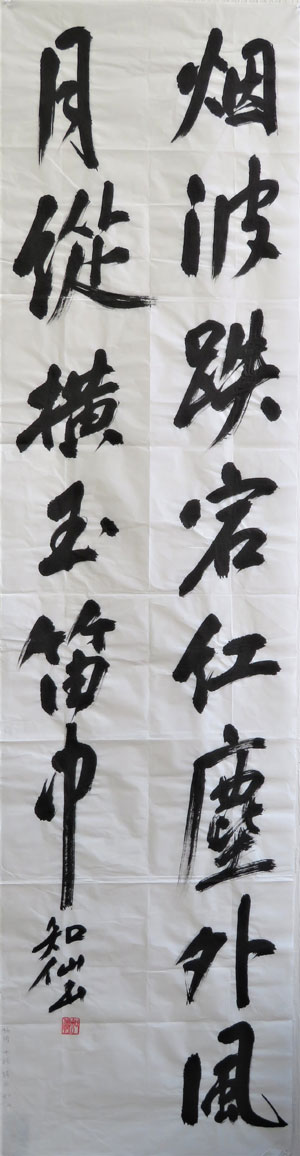 烟波跌宕红塵外風
月縱横玉笛中
知仙